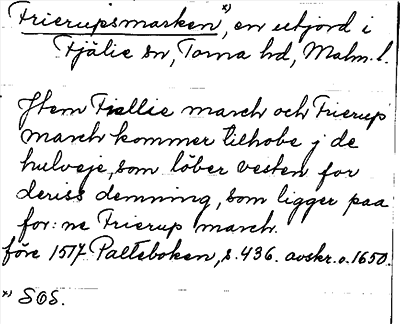 Frierupsmarken, *) en utjord i
Fjälie sn, Torna hd, Malm. l.
Jtem Fiellie march och Frierup
march kommer tilhobe j de
hulveje, som löber vesten for
deriss demning, som ligger paa
for: ne Frierup march.
före 1517 Palteboken, s. 436. avskr. o. 1650.
*) SOS.